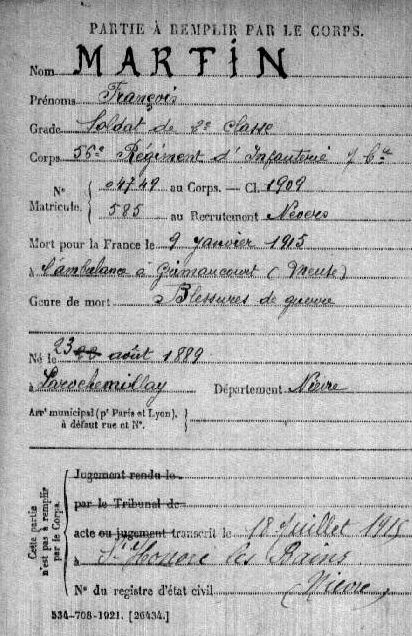 PARTIE À REMPLIR PAR LE CORPS.
Nom MARTIN
Prénoms François
Grade Soldat de 2e Classe
Corps 56e Régiment d'Infanterie
N° Matricule. { 04749 au Corps. — Cl. 1909
585 au Recrutement Nevers
Mort pour la France le 9 janvier 1915
à l'ambulance à Grimaucourt (Meuse)
Genre de mort Blessures de guerre
Né le 23 août 1889
à Larochemillay Département Nièvre
Arrt municipal (pr Paris et Lyon), à défaut rue et N°. }
Cette partie n'est pas à remplir par le Corps.
Jugement rendu le
par le Tribunal de
acte ou jugement transcrit le 18 Juillet 1915
à St Honoré les Bains
N° du registre d'état civil (Nièvre)
534-708-1921. [26434.]